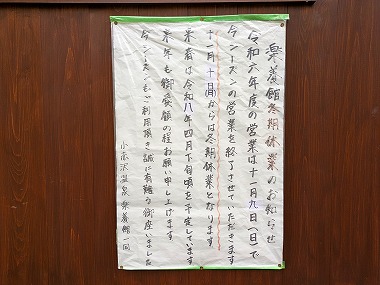 楽養館冬期休業のお知らせ
令和六年度の営業は十一月九日（日）で
今シーズンの営業を終了させていただきます
十一月十日（月）からは冬期休業となります
来春は令和八年四月下旬頃を予定しています
来年も御愛顧の程お願い申し上げます
今シーズンもご利用頂き誠に有難う御座いました
小赤沢温泉楽養館一同